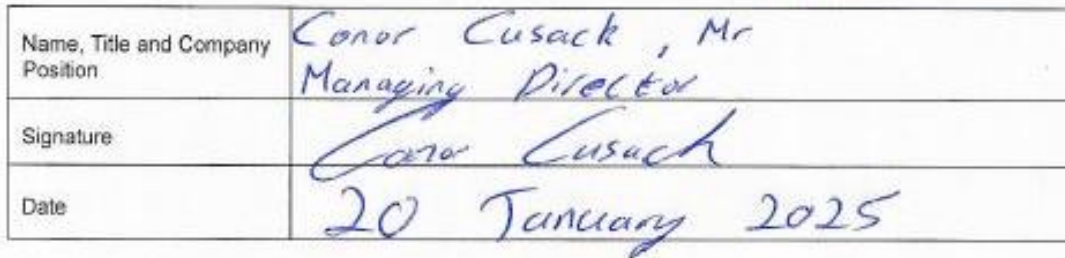 Name, Title and Company Conor Cusack, Mr
Position Managing Director
Signature Conor Cusack
Date 20 January 2025